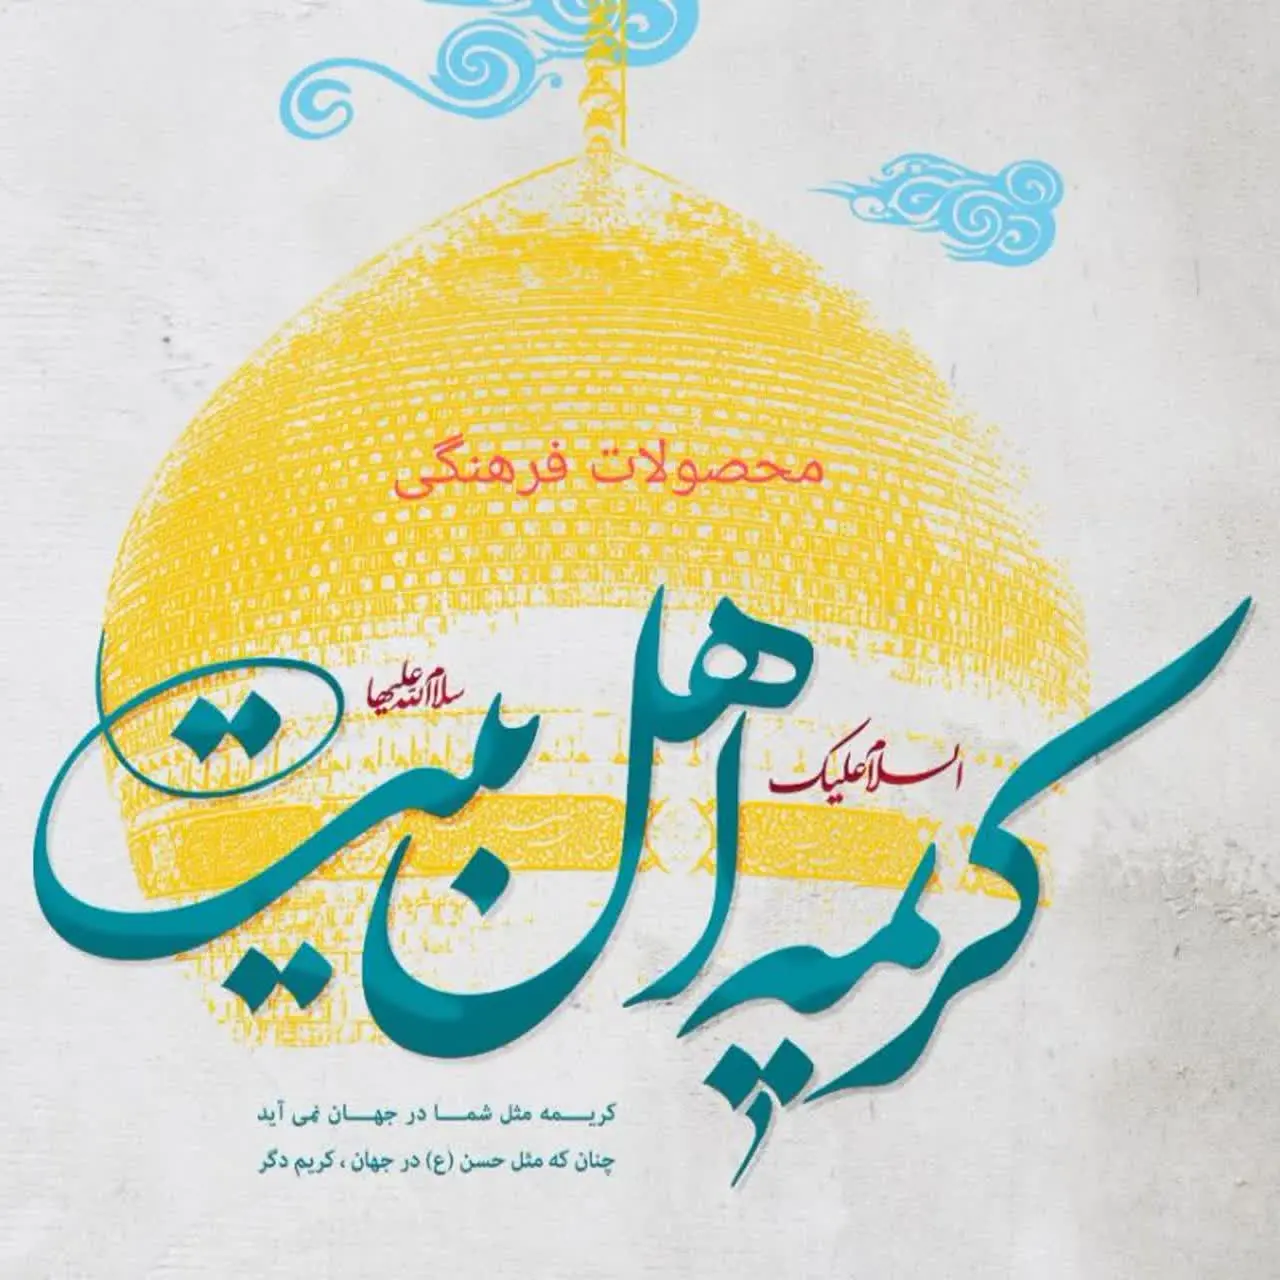 محصولات فرهنگی
السلام علیک
کریمه اهل بیت
سلام الله علیها
کریمه مثل شما در جهان نمی آید
چنان که مثل حسن (ع) در جهان ، کریم دگر